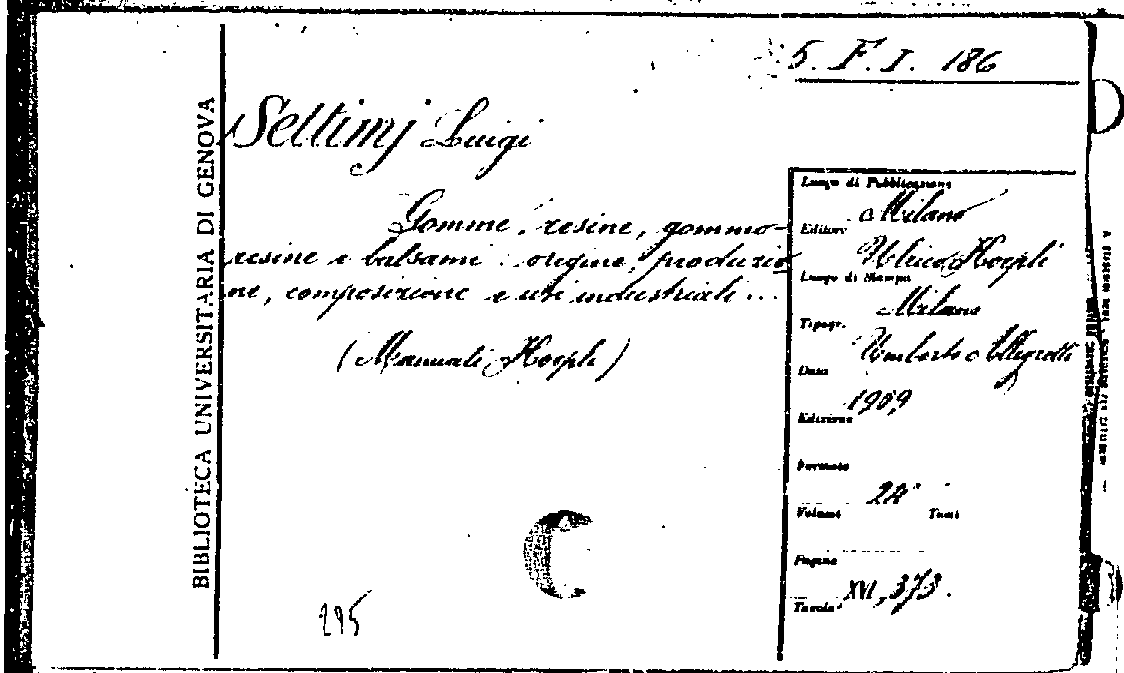 5. F. I. 186
BIBLIOTECA UNIVERSITARIA DI GENOVA
Settimj Luigi
Gomme, resine, gommo-
resine e balsami : origine, produzio
ne, composizione e usi industriali ...
(Manuali Hoepli)
Luogo di Pubblicazione
Milano
Editore
Ulrico Hoepli
Luogo di Stampa
Milano
Tipogr.
Umberto Allegretti
Data
1909
Edizione
Formato
24°
Volume Tomi
Pagine
XVI, 373.
Tavole
295